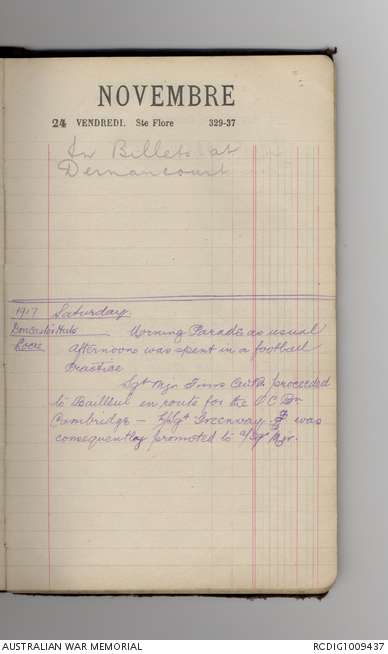 NOVEMBRE
24 VENDREDI. Ste Flore 329-37
In Billets at
Dernancourt
1917 Saturday.
Doncaster Huts Morning Parade as usual
Locre Afternoon was spent in a football
Practise
Sgt Mjr proceeded
to Bailleul en route for the O.C. Bn
Cambridge — Sgt Greenway was
consequently promoted to a/Sgt Mjr.
AUSTRALIAN WAR MEMORIAL RCDIG1009437